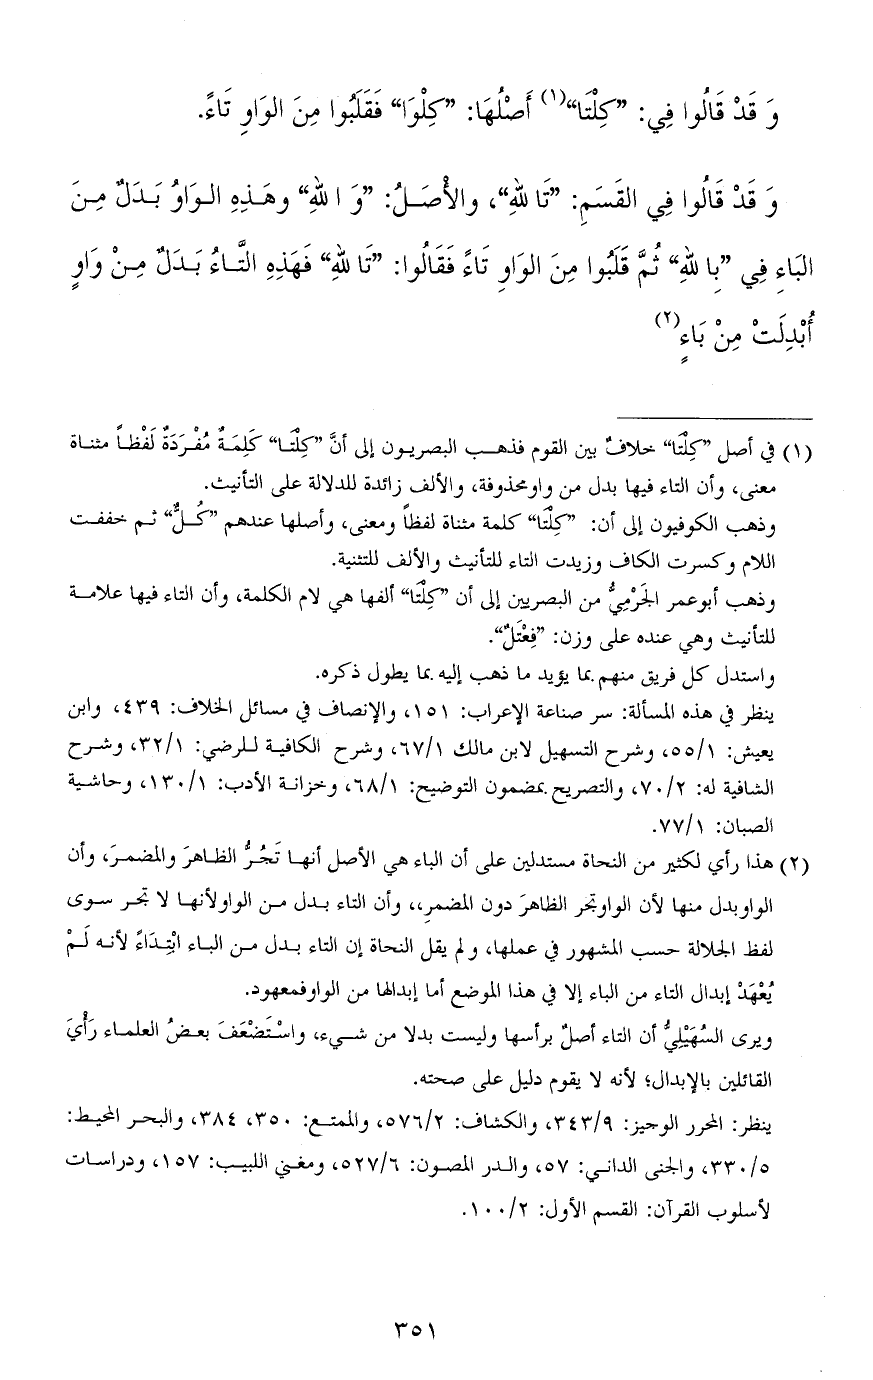 وَ قَدْ قَالُوا فِي: ”كِلْتَا“(١) أَصْلُهَا: ”كِلْوَا“ فَقَلَبُوا مِنَ الوَاوِ تَاءً.
وَ قَدْ قَالُوا فِي القَسَمِ: ”تَا للهِ“، والأَصْلُ: ”وَ ا للهِ“ وهَذِهِ الوَاوُ بَدَلٌ مِنَ
البَاءِ فِي ”بِا للهِ“ ثُمَّ قَلَبُوا مِنَ الوَاوِ تَاءً فَقَالُوا: ”تَا للهِ“ فَهَذِهِ التَّاءُ بَدَلٌ مِنْ وَاوٍ
أُبْدِلَتْ مِنْ بَاءٍ(٢)
(١) في أصل ”كِلْتَا“ خلافٌ بين القوم فذهب البصريون إلى أنَّ ”كِلْتَا“ كَلِمَةٌ مُفْرَدَةٌ لَفْظاً مثناة
معنى، وأن التاء فيها بدل من واومحذوفة، والألف زائدة للدلالة على التأنيث.
وذهب الكوفيون إلى أن: ”كِلْتَا“ كلمة مثناة لفظاً ومعنى، وأصلها عندهم ”كُلٌّ“ ثم خففت
اللام وكسرت الكاف وزيدت التاء للتأنيث والألف للتثنية.
وذهب أبوعمر الجَرْمِيُّ من البصريين إلى أن ”كِلْتَا“ ألفها هي لام الكلمة، وأن التاء فيها علامة
للتأنيث وهي عنده على وزن: ”فِعْتَلٌ“.
واستدل كل فريق منهم بما يؤيد ما ذهب إليه بما يطول ذكره.
ينظر في هذه المسألة: سر صناعة الإعراب: ١٥١، والإنصاف في مسائل الخلاف: ٤٣٩، وابن
يعيش: ٥٥/١، وشرح التسهيل لابن مالك ٦٧/١، وشرح الكافية للرضي: ٣٢/١، وشرح
الشافية له: ٧٠/٢، والتصريح بمضمون التوضيح: ٦٨/١، وخزانة الأدب: ١٣٠/١، وحاشية
الصبان: ٧٧/١.
(٢) هذا رأي لكثير من النحاة مستدلين على أن الباء هي الأصل أنها تَجُرُّ الظاهرَ والمضمرَ، وأن
الواوبدل منها لأن الواوتجر الظاهرَ دون المضمرِ،، وأن التاء بدل من الواولأنها لا تجر سوى
لفظ الجلالة حسب المشهور في عملها، ولم يقل النحاة إن التاء بدل من الباء ابْتِدَاءً لأنه لَمْ
يُعْهَدْ إبدال التاء من الباء إلا في هذا الموضع أما إبدالها من الواوفمعهود.
ويرى السُهَيْلِيُّ أن التاء أصلٌ برأسها وليست بدلا من شيء، واسْتَضْعَفَ بعضُ العلماء رَأْيَ
القائلين بالإبدال؛ لأنه لا يقوم دليل على صحته.
ينظر: المحرر الوجيز: ٣٤٣/٩، والكشاف: ٥٧٦/٢، والممتع: ٣٥٠، ٣٨٤، والبحر المحيط:
٣٣٠/٥، والجنى الداني: ٥٧، والدر المصون: ٥٢٧/٦، ومغني اللبيب: ١٥٧، ودراسات
لأسلوب القرآن: القسم الأول: ١٠٠/٢.
٣٥١